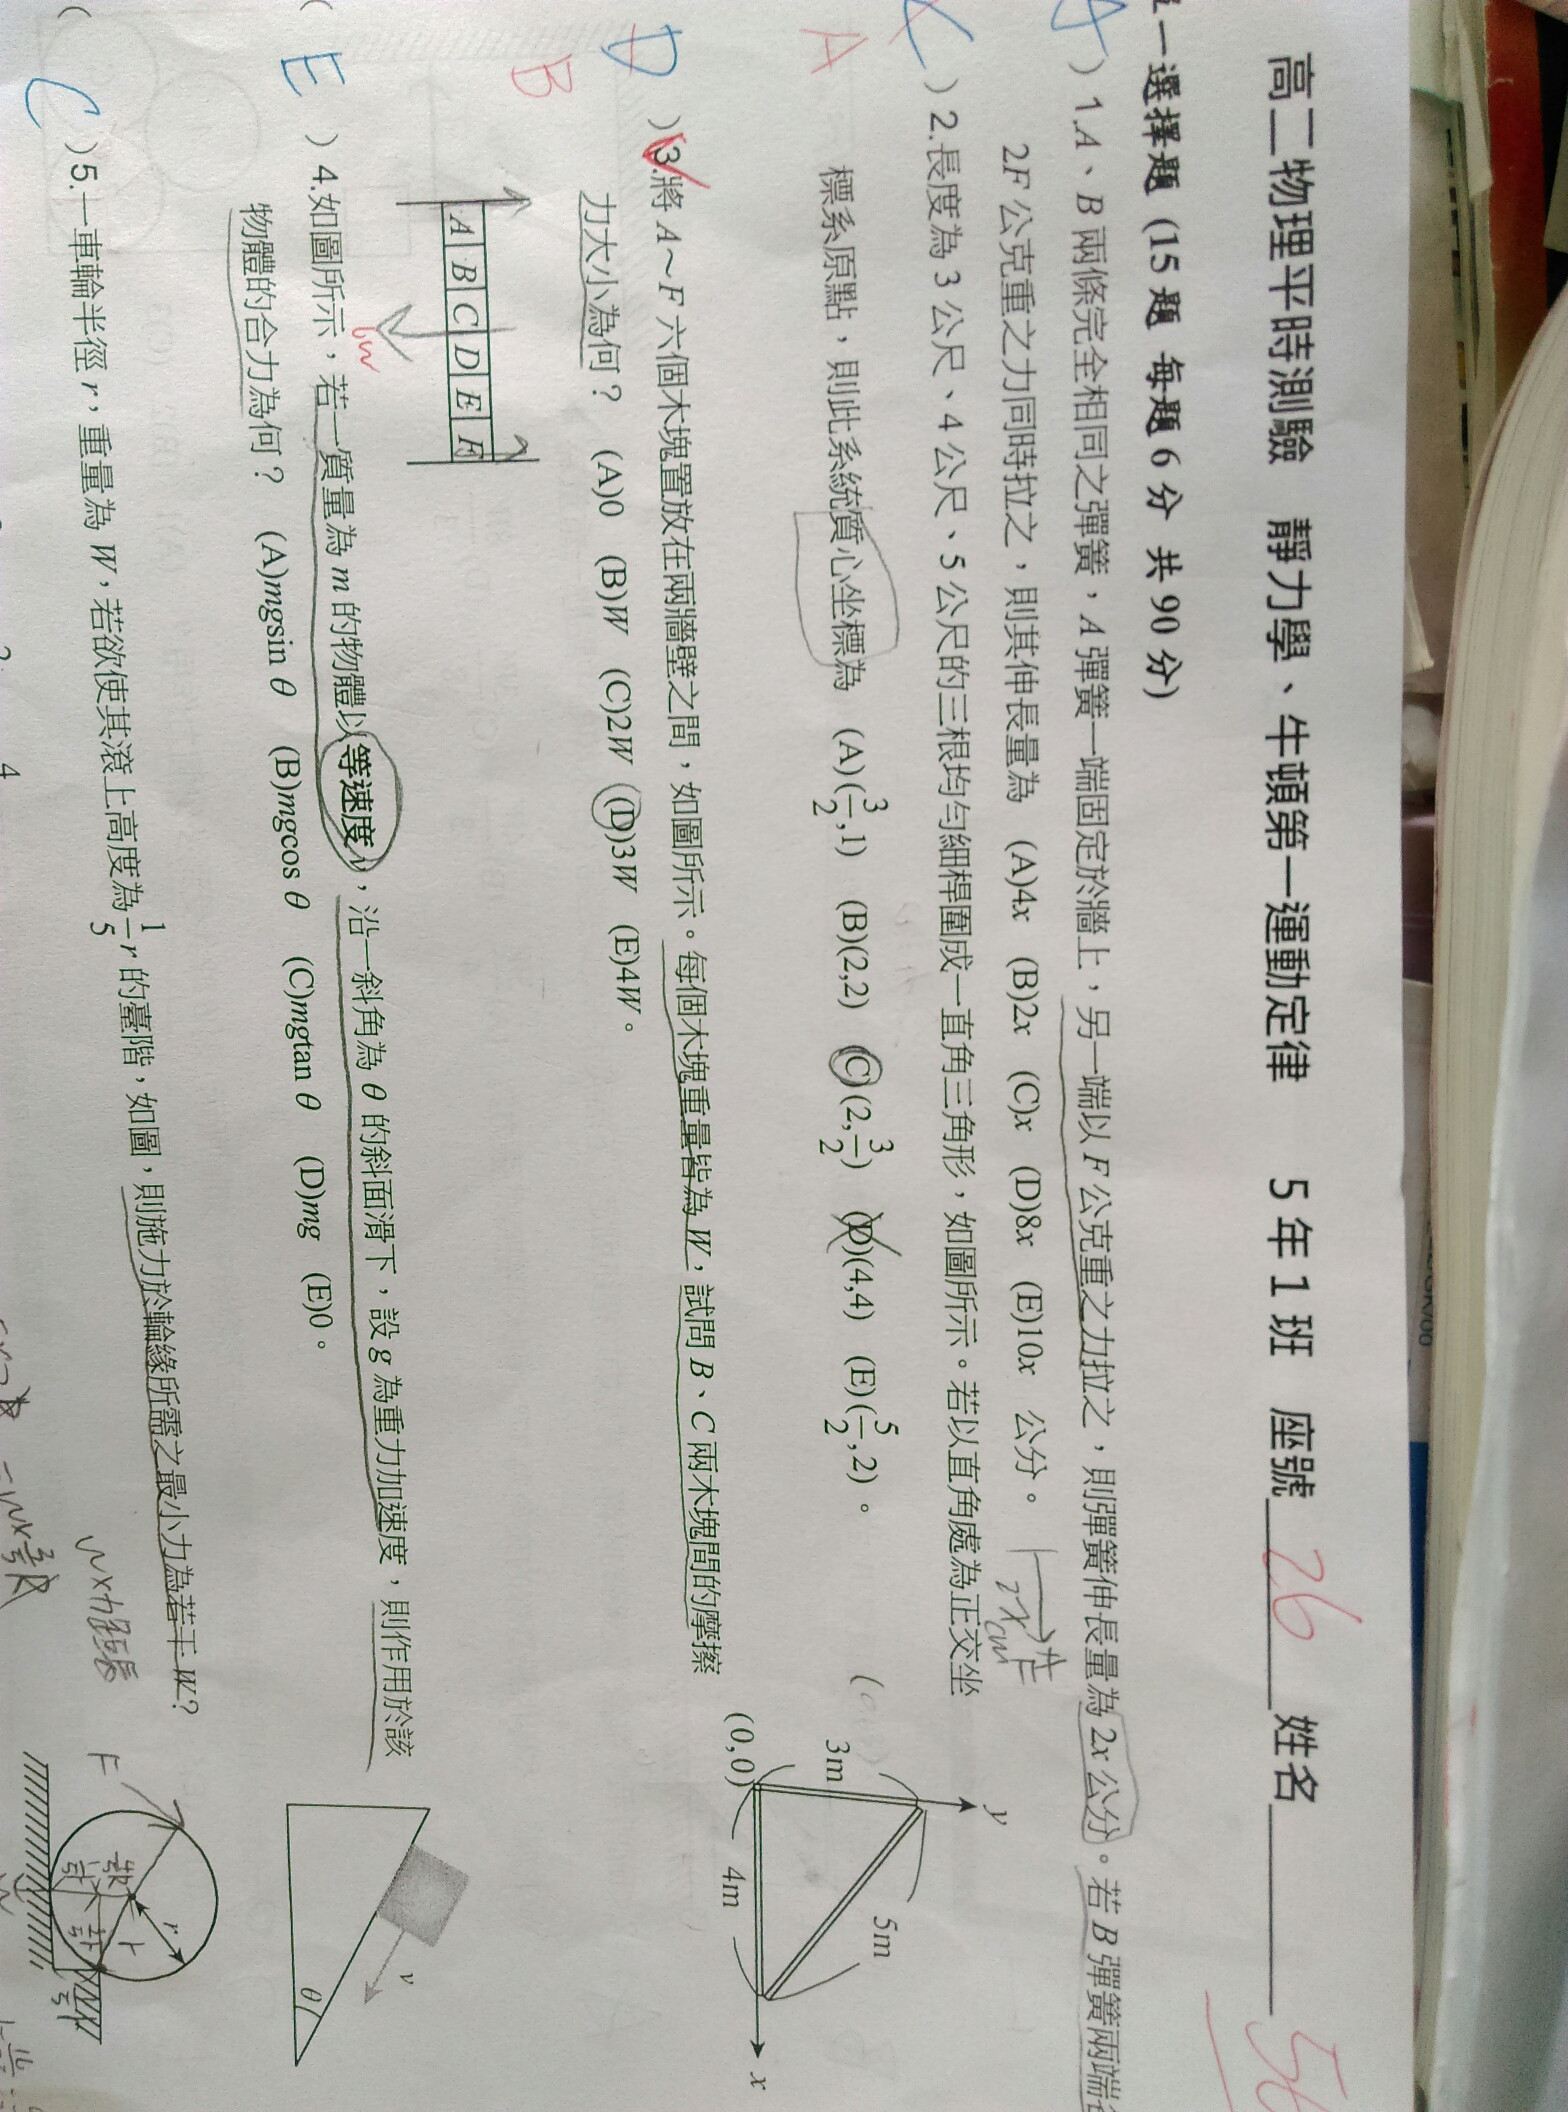 高二物理平時測驗 靜力學、牛頓第一運動定律 5年1班 座號 26 姓名
56
一選擇題 (15 題 每題 6 分 共 90 分)
A )1.A、B 兩條完全相同之彈簧，A 彈簧一端固定於牆上，另一端以 F 公克重之力拉之，則彈簧伸長量為 2x 公分。若 B 彈簧兩端各
2F 公克重之力同時拉之，則其伸長量為 (A)4x (B)2x (C)x (D)8x (E)10x 公分。
2x cm
C )2.長度為 3 公尺、4 公尺、5 公尺的三根均勻細桿圍成一直角三角形，如圖所示。若以直角處為正交坐
A 標系原點，則此系統質心坐標為 (A)(3/2,1) (B)(2,2) (C)(2,3/2) (D)(4,4) (E)(5/2,2)。
y
3m
5m
(0,0)
4m
x
D )3.將 A～F 六個木塊置放在兩牆壁之間，如圖所示。每個木塊重量皆為 W，試問 B、C 兩木塊間的摩擦
B 力大小為何？ (A)0 (B)W (C)2W (D)3W (E)4W。
A B C D E F
6W
E )4.如圖所示，若一質量為 m 的物體以等速度 v，沿一斜角為 θ 的斜面滑下，設 g 為重力加速度，則作用於該
物體的合力為何？ (A)mgsin θ (B)mgcos θ (C)mgtan θ (D)mg (E)0。
v
θ
C )5.一車輪半徑 r，重量為 W，若欲使其滾上高度為 1/5 r 的臺階，如圖，則施力於輪緣所需之最小力為若干 W？
W×力臂長
F
r